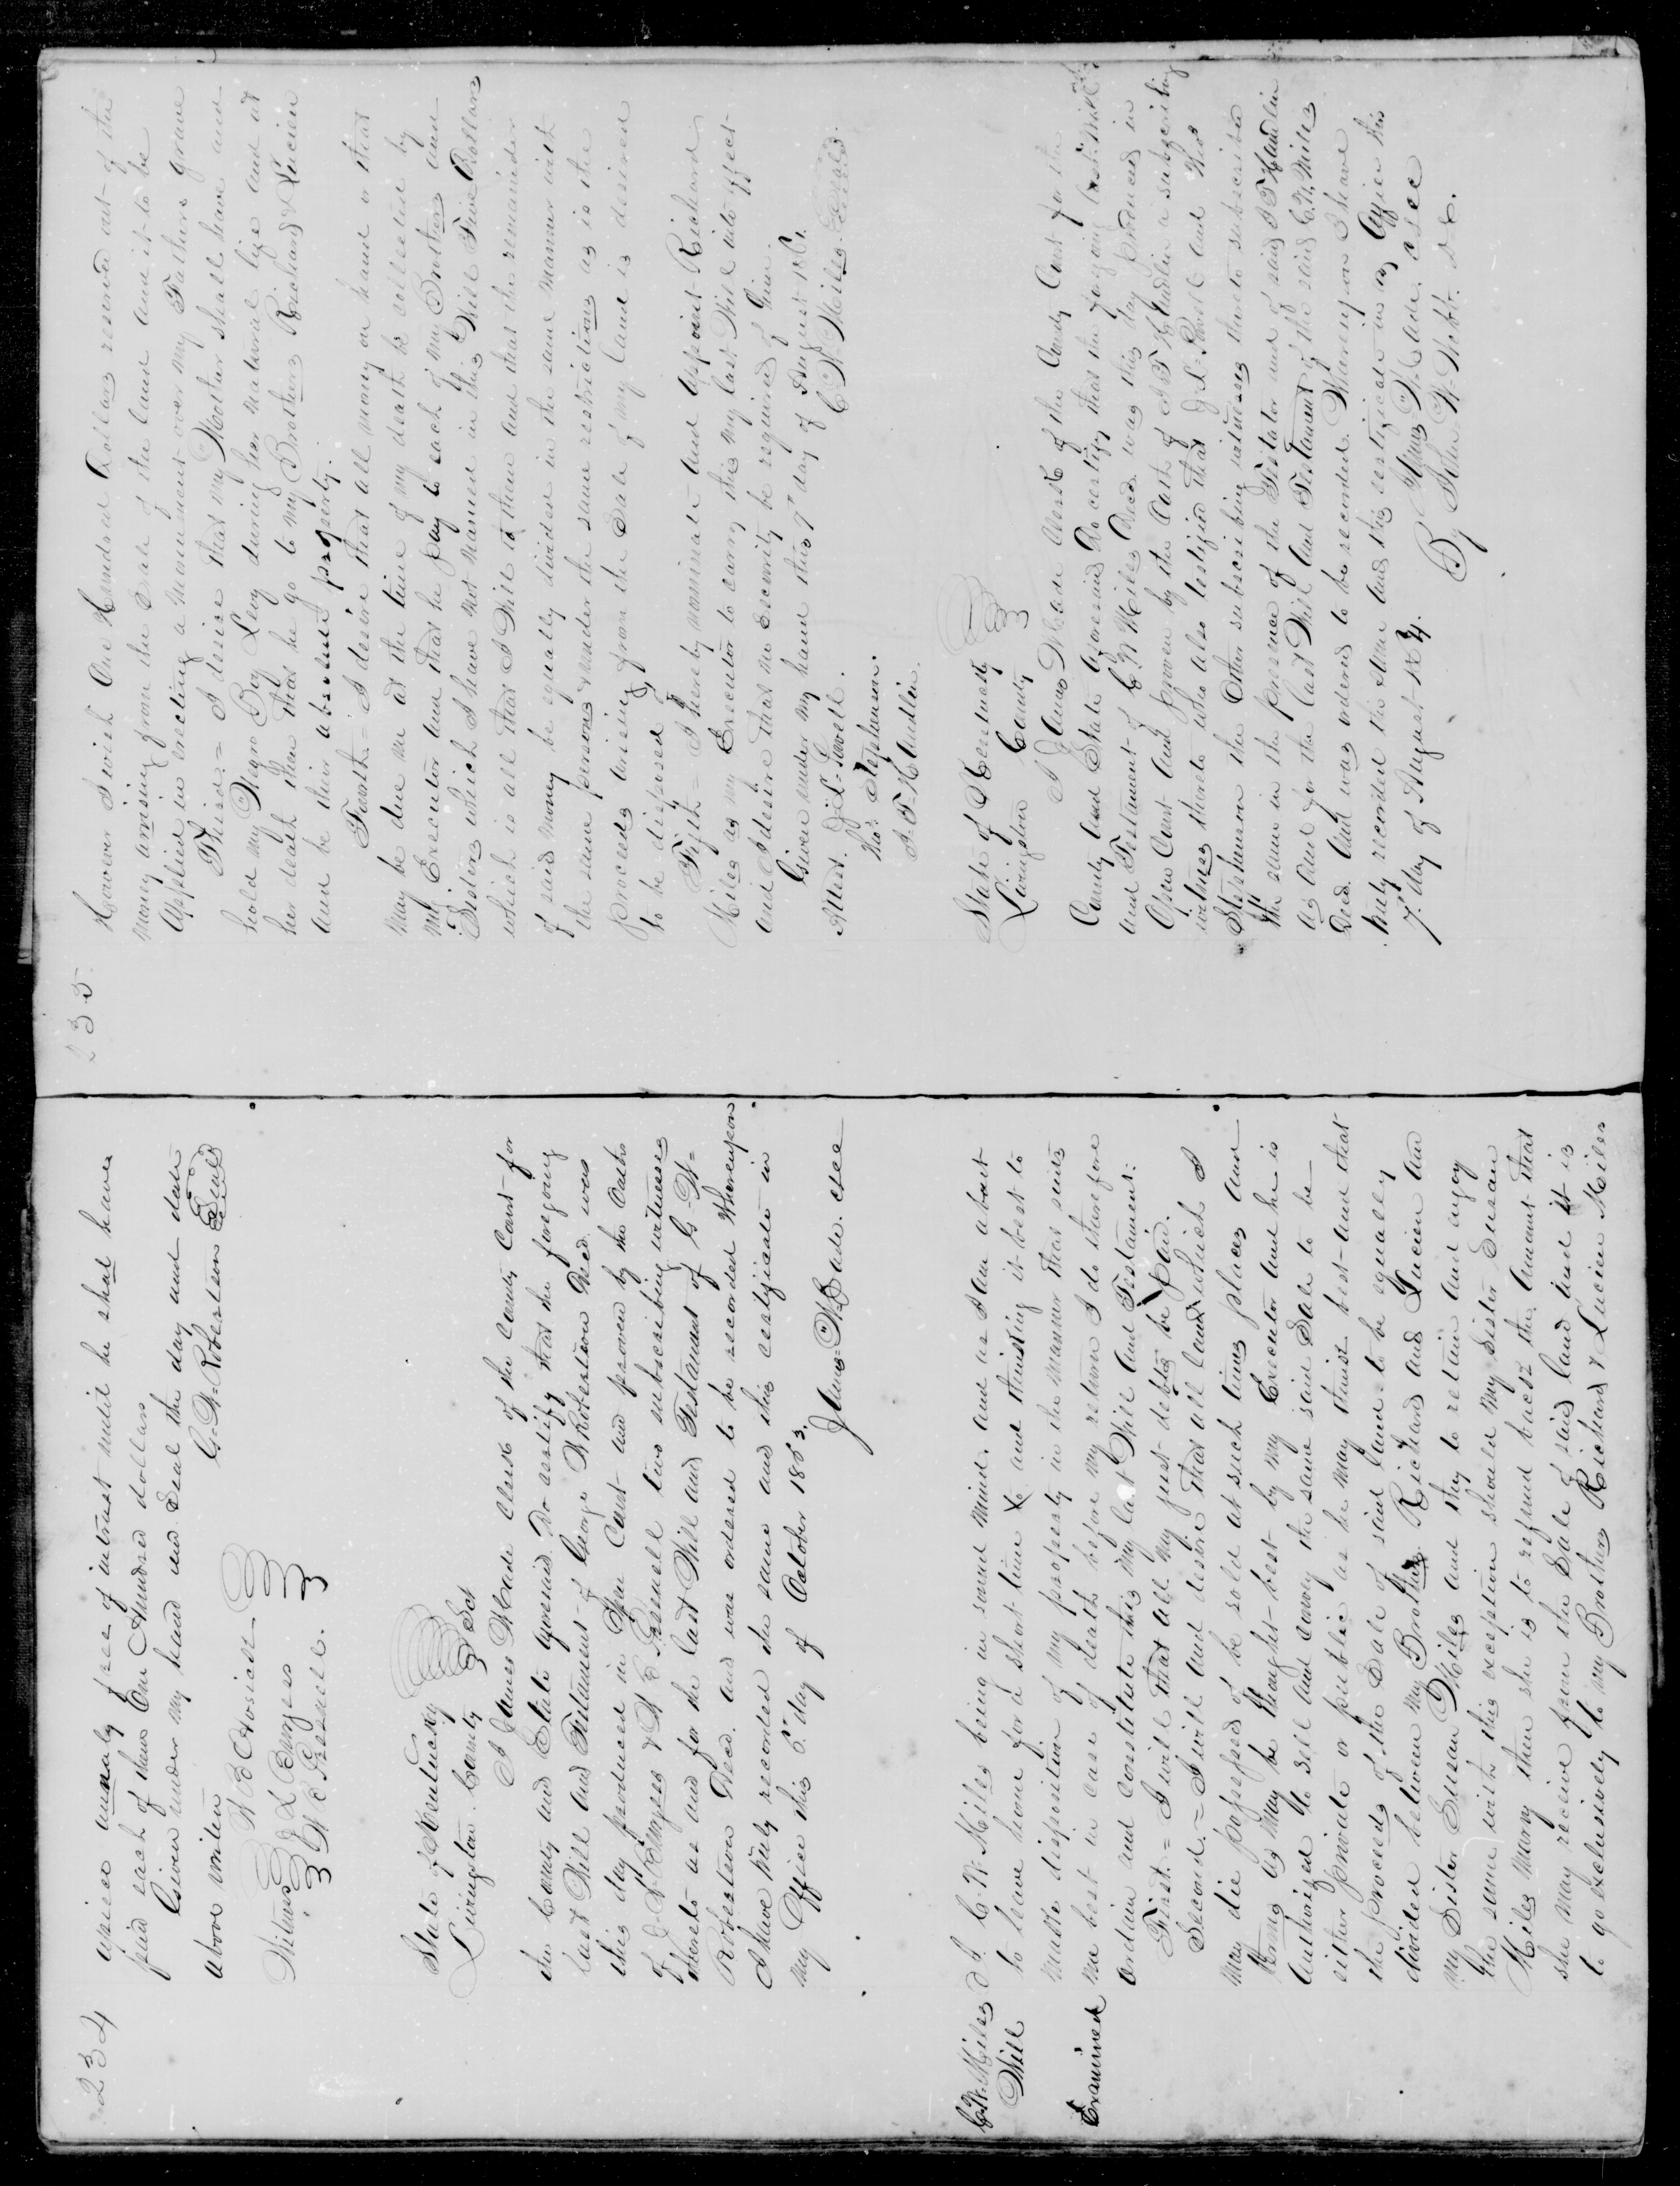 234
apiece annualy free of intrust until he shall have
paid each of them One Hundred dollars
Given under my hand and Seal the day and date
above written G. W. Robertson Seal
Witness W B Hosick
J L Burgess
W C Presnell.
State of Kentucky
Livingston County Sct
I James W Wade Clerk of the County Court for
the County and State aforesaid Do certify that the foregoing
last Will and Testament of George W Robertson Decd. was
this day produced in Open Court and proven by the Oaths
of J L Burgess & W C Presnell two subscribing witnesses
thereto as and for the last Will and Testament of G. W.
Robertson Decd. and was ordered to be recorded Whereupon
I have truly recorded the same and this certificate in
my Office this 5" day of October 1863.
James W Wade. Clk
C. W. Miles d
Will
Examined
I. C. W. Miles being in sound mind. and as I am about
to leave home for a short time & and thinking it best to
make disposition of my property in the manner that suits
me best in case of death before my return I do therefore
ordain and constitute this my last Will and Testament:
First. = I will that all my just debts be paid.
Second. = I will and desire that all land which I
may die possessed of be sold at such times places and
terms as may be thought best by my Executor and he is
authorized to sell and convey the same said Sale to be
either private or public as he may think best and that
the proceeds of the Sale of said land to be equally
divided between my Brothers Richard and Lucien and
my Sister Susan Miles and they to retain and enjoy
the same with this exception should my Sister Susan
Miles marry then she is to refund back the Amount that
she may receive from the Sale of said land and it is
to go exclusively to my Brothers Richard & Lucien Miles
235.
However I wish One Hundred Dollars reserved out of the
money arising from the Sale of the land and it to be
applied in erecting a monument over my Fathers grave
Third. = I desire that my Mother shall have and
hold my Negro Boy Levy during her natural life and at
her death then that he go to my Brothers Richard & Lucien
and be their absolute property.
Fourth = I desire that all money on hand or that
may be due me at the time of my death be collected by
my Executor and that he pay to each of my Brothers and
Sisters which I have not named in this Will Five Dollars
which is all that I Will to them and that the remainder
of said money be equally divided in the same manner with
the same persons & under the same restrictions as is the
proceeds arising from the Sale of my land is desired
to be disposed of
Fifth = I hereby nominate and appoint Richard
Miles as my Executor to carry this my last Will into effect
and I desire that no security be required of him.
Given under my hand this 9" day of August
Attest. J. L. Powell. C W Miles Seald.
Stephenson.
J. T. Handlin
State of Kentucky
Livingston County
I James W Wade Clerk of the County Court for the
County and State aforesaid Do certify that the forgoing last Will
and Testament of C W Miles Decd. was this day produced in
Open Court and proven by the Oath of J T Handlin a subscribing
witness thereto who also testified that J. L. Powell and Thos
Stephenson the other subscribing witnesses thereto subscribed
the same in the presence of the Testator and of said J T Handlin
as and for the last Will and Testament of the said C. W. Miles
Decd. and was ordered to be recorded. Whereupon I have
truly recorded the same and this certificate in my Office this
7" day of August 1864. James W. Wade. Clk
By John W. Webb. D. C.